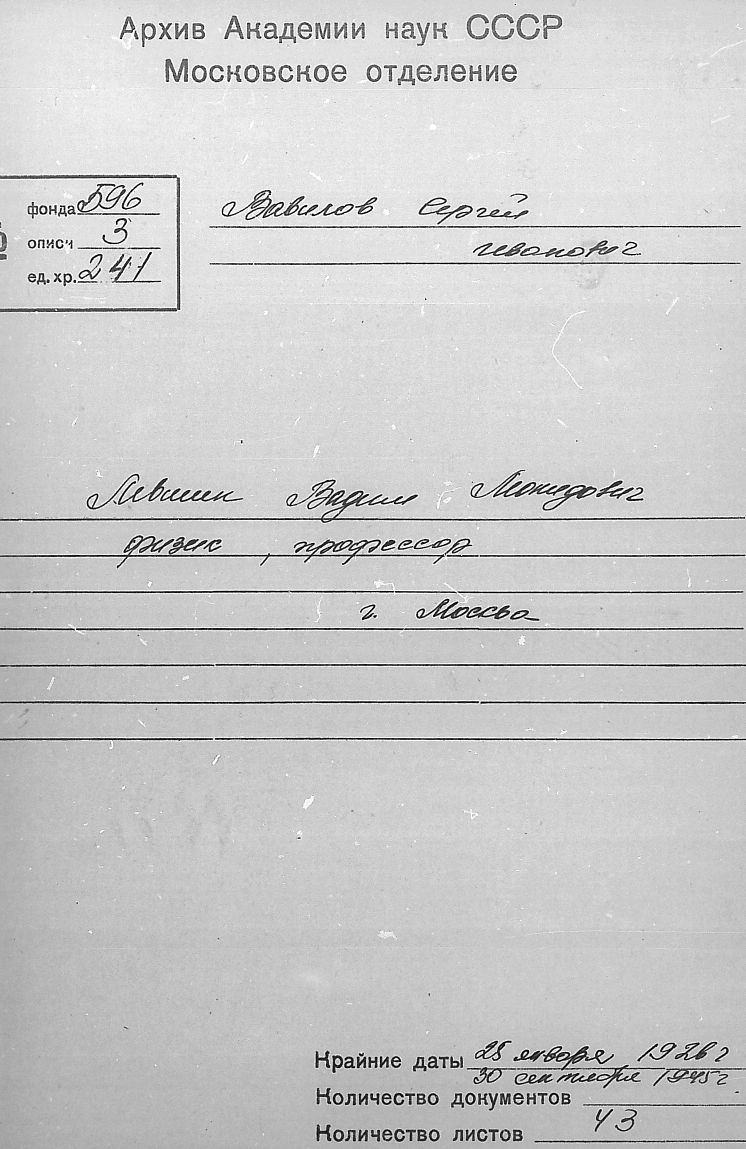 Архив Академии наук СССР
Московское отделение
фонда 596
описи 3
ед. хр. 241
Вавилов Сергей
Иванович
Левшин Вадим Леонидович
физик, профессор
г. Москва
Крайние даты 25 января 1926 г
30 сентября 1945 г.
Количество документов
Количество листов 43